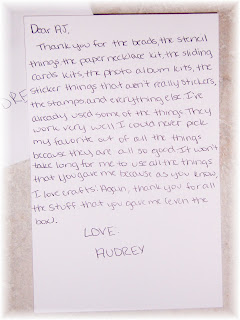 Dear AJ,
Thank you for the beads, the stencil
things, the paper necklace kit, the sliding
cards kits, the photo album kits, the
sticker things that aren't really stickers,
the stamps, and everything else. I've
already used some of the things. They
work very well. I could never pick
my favorite out of all the things
because they are all so good. It won't
take long for me to use all the things
that you gave me because as you know,
I love crafts. Again, thank you for all
the stuff that you gave me (even the
box).
LOVE,
AUDREY